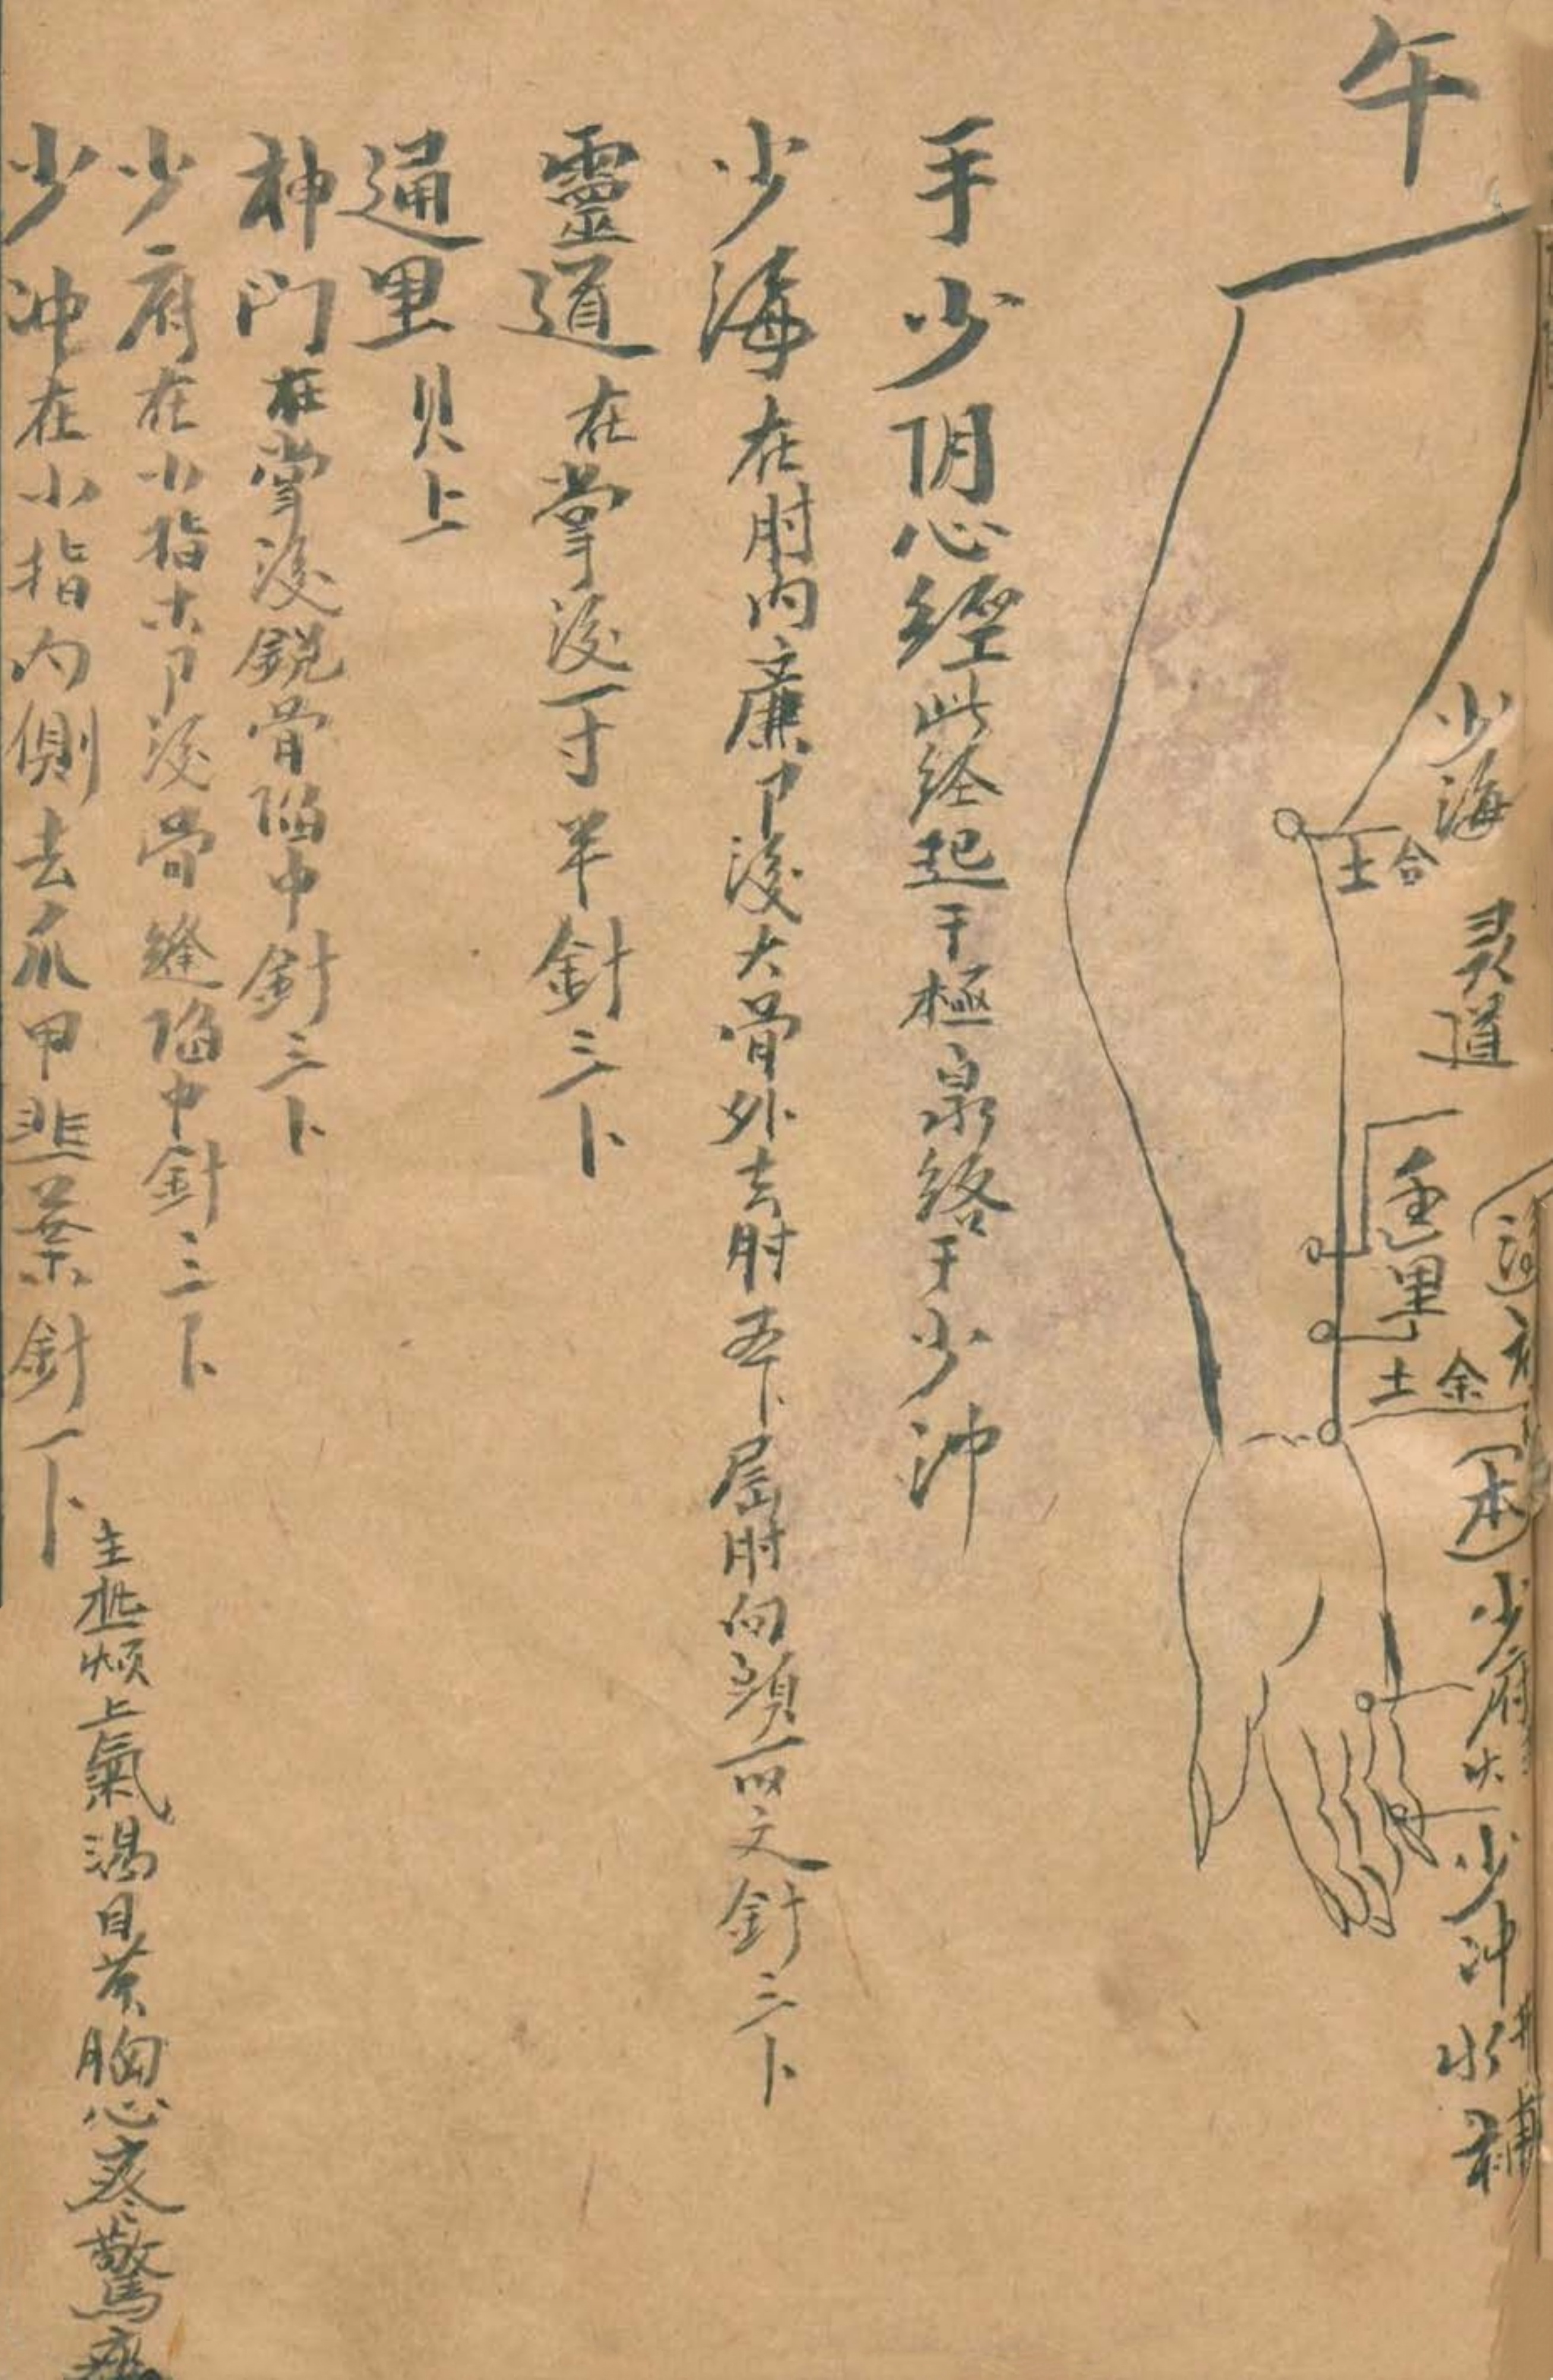 午
少海
土 合
灵道
通里
土 余
本
少府 火
少冲
水 補
手少阴心經此经起于極泉络于少沖
少海在肘内廉卩後大骨外去肘五卜屈肘向頭而文針三卜
靈道在掌後一寸半針三卜
通里贝上
神门在掌後銳骨陷中針三卜
少府在小指本卩後骨縫陷中針三卜
少冲在小指内側去爪甲韭葉針一卜
主 烦上氣渴目黄胸心疼驚